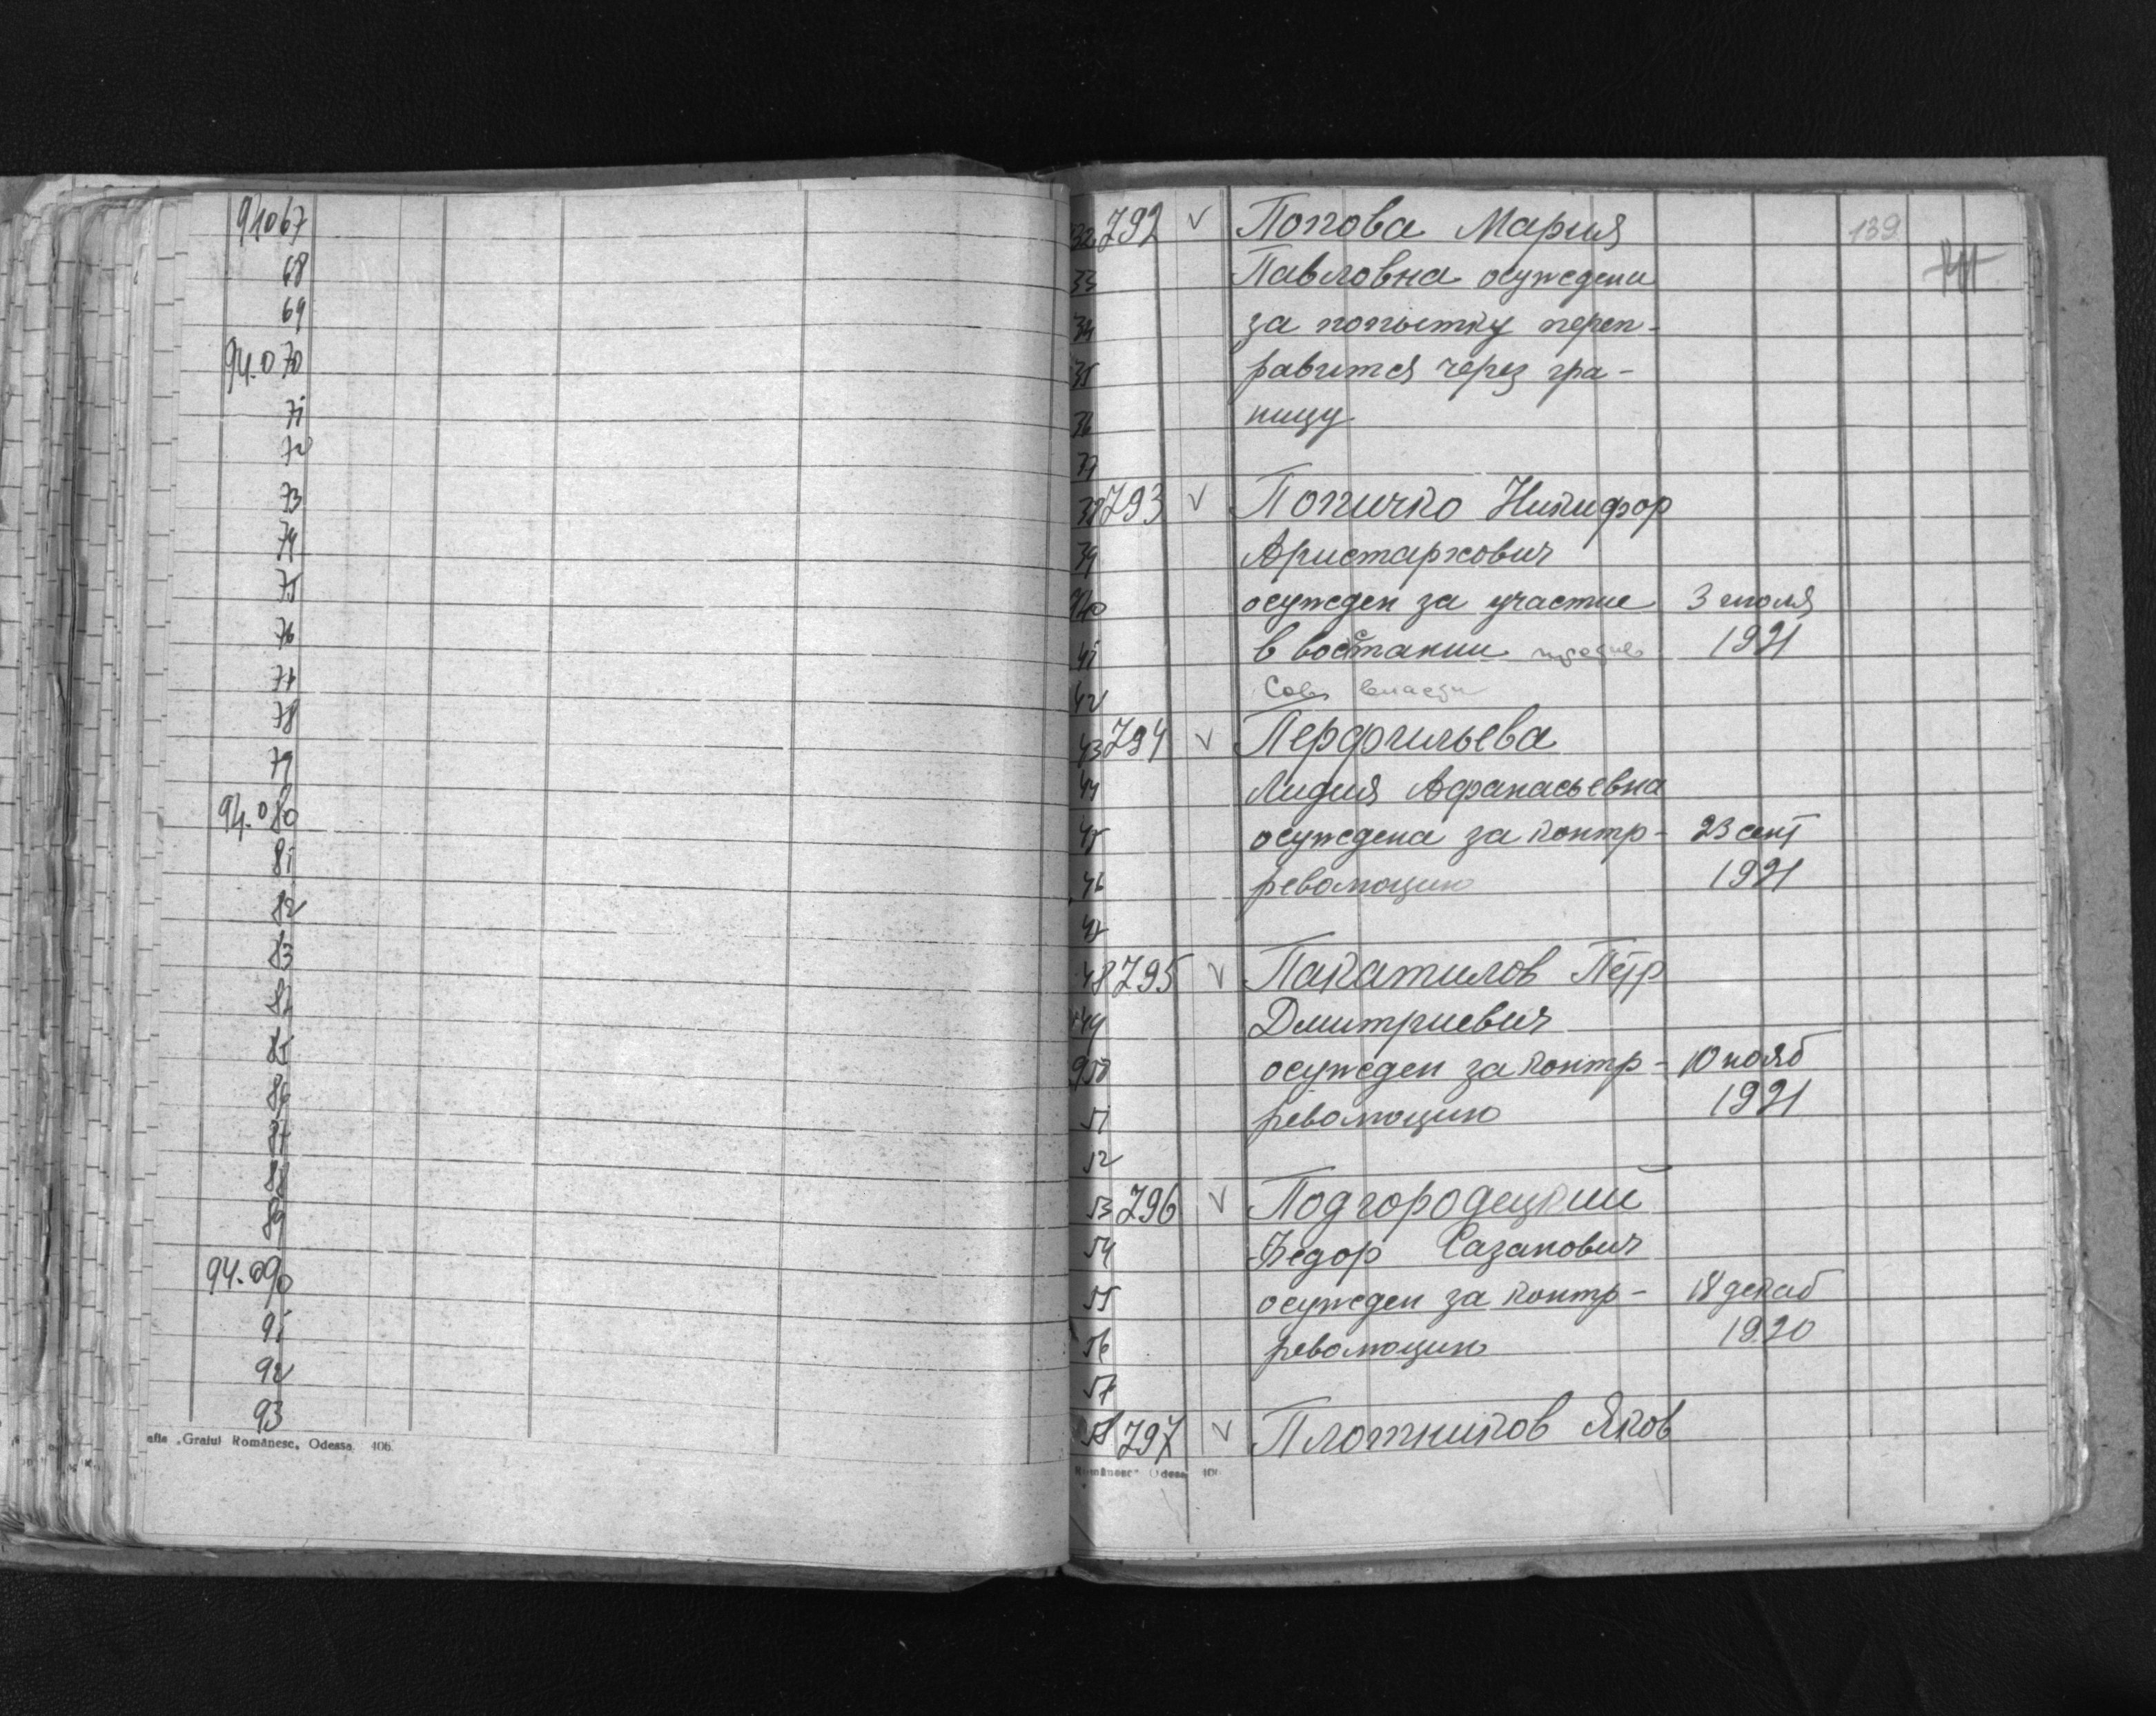 94067
68
69
94.070
71
72
73
74
75
76
77
78
79
94.080
81
82
83
84
85
86
87
88
89
94.090
91
92
93
afia „Graiul Românesc„ Odessa 406.
139
32 792 v Попова Мария
33 Павловна осуждена
34 за попытку переп-
35 равится через гра-
36 ницу
37
38 793 v Попичко Никифор
39 Аристархович
940 осужден за участие 3 июля
41 в востании против 1921
42 Сов власти
43 794 v Перфильева
44 Лидия Афанасьевна
45 осуждена за контр- 23 сент
46 революцию 1921
47
48 795 v Пакатилов Пётр
49 Дмитриевич
950 осужден за контр- 10 нояб
51 революцию 1921
52
53 796 v Подгородецкий
54 Федор Сазанович
55 осужден за контр- 18 декаб
56 революцию 1920
57
58 797 v Плотников Яков
Românesc" Odessa 406